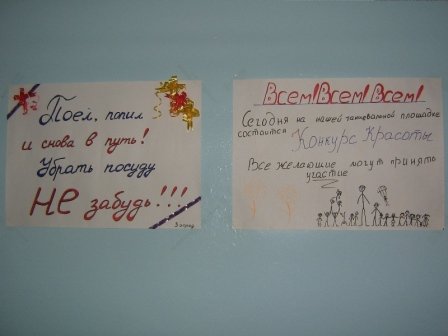 Поел, попил
и снова в путь!
Убрать посуду
НЕ забудь!!!
3 отряд
Всем! Всем! Всем!
Сегодня на нашей танцевальной площадке
состоится Конкурс Красоты
Все желающие могут принять
участие